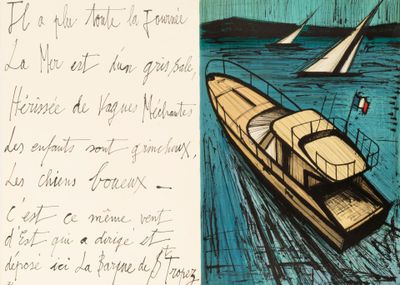 Il a plu toute la Journée
La Mer est d'un gris, sale,
Hérissée de Vagues Méchantes
Les enfants sont grincheux,
Les chiens boueux —
C'est ce même vent
d'Est qui a dirigé et
déposé ici La Barque de St Tropez